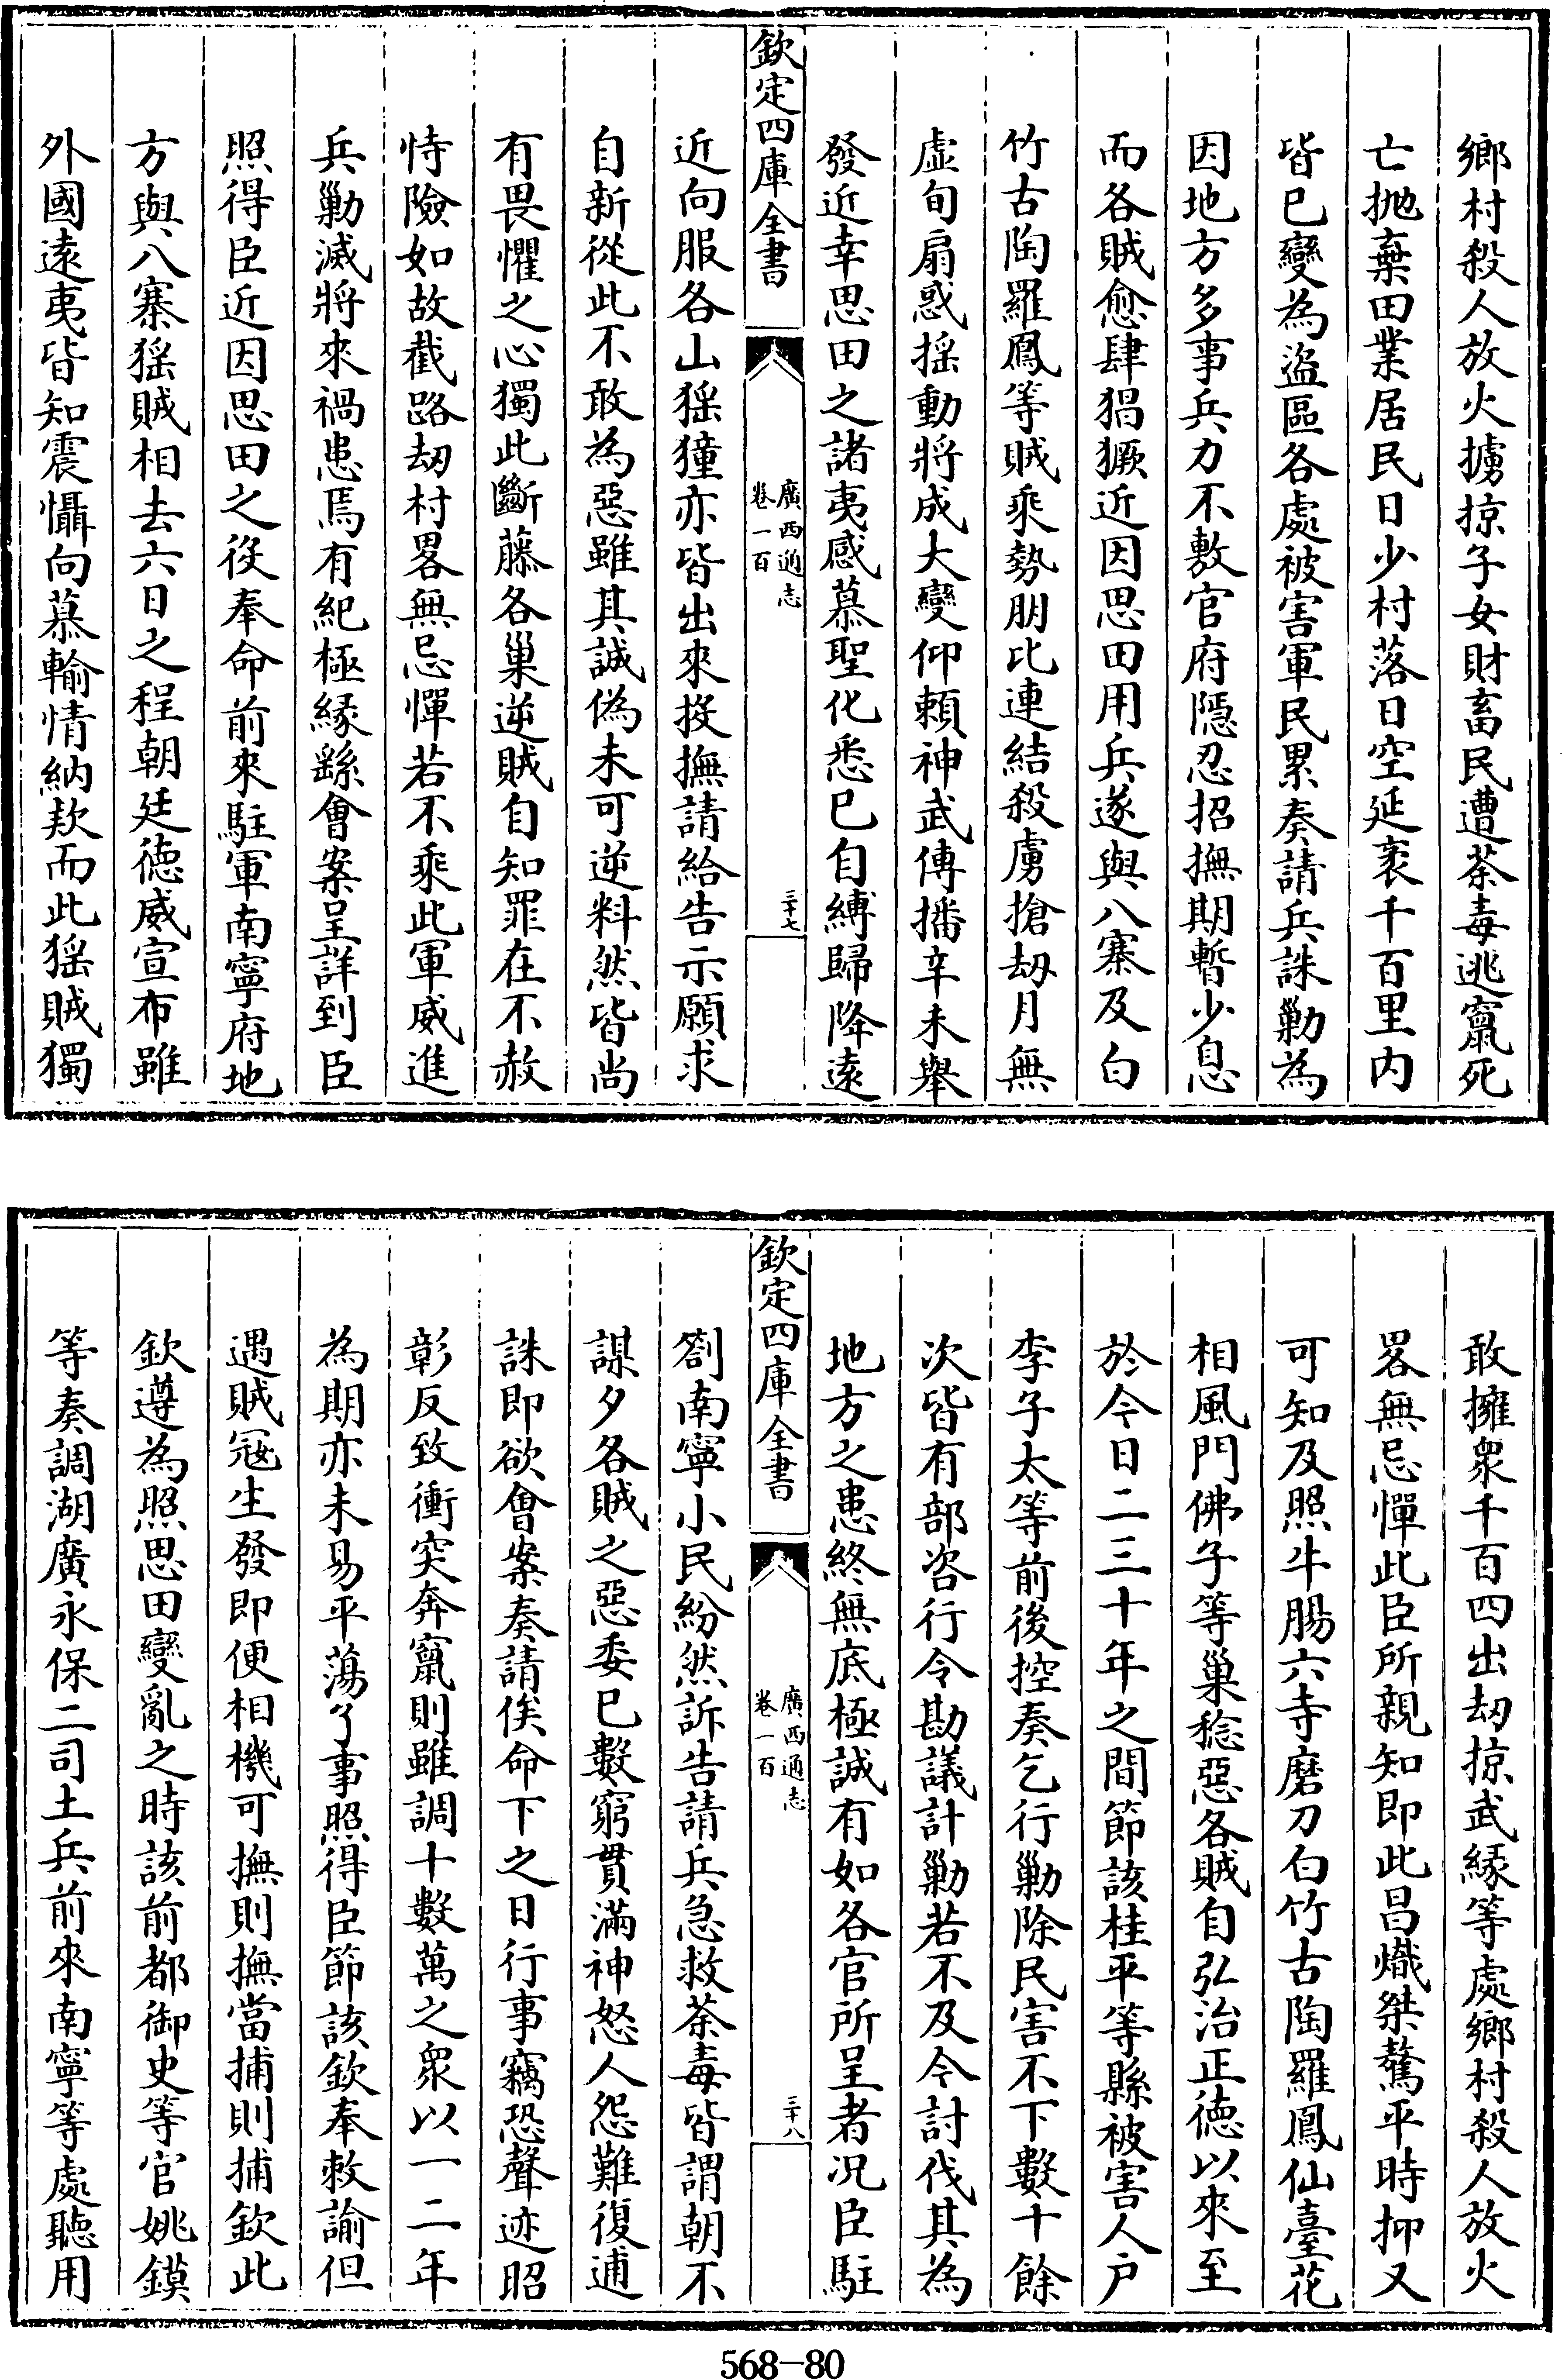 鄉村殺人放火擄掠子女財畜民遭荼毒逃竄死
亡拋棄田業居民日少村落日空延袤千百里內
皆已變為盜區各處被害軍民累奏請兵誅勦為
因地方多事兵力不敷官府隱忍招撫期暫少息
而各賊愈肆猖獗近因思田用兵遂與八寨及白
竹古陶羅鳳等賊乘勢朋比連結殺虜搶刼月無
虛旬扇惑搖動將成大變仰頼神武傳播辛未舉
發近幸思田之諸夷感慕聖化悉已自縛歸降遠
欽定四庫全書
廣西通志
卷一百
三十七
近向服各山猺獞亦皆出來投撫請給告示願求
自新從此不敢為惡雖其誠偽未可逆料然皆尚
有畏懼之心獨此斷藤各巢逆賊自知罪在不赦
恃險如故截路刼村畧無忌憚若不乘此軍威進
兵勦滅將來禍患焉有紀極緣繇會案呈詳到臣
照得臣近因思田之役奉命前來駐軍南寧府地
方與八寨猺賊相去六日之程朝廷徳威宣布雖
外國遠夷皆知震懾向慕輸情納欵而此猺賊獨
敢擁衆千百四出刼掠武緣等處鄉村殺人放火
畧無忌憚此臣所親知即此昌熾桀驁平時抑又
可知及照牛腸六寺磨刀白竹古陶羅鳳仙臺花
相風門佛子等巢稔惡各賊自弘治正徳以來至
於今日二三十年之間節該桂平等縣被害人户
李子太等前後控奏乞行勦除民害不下數十餘
次皆有部咨行令勘議計勦若不及今討伐其為
地方之患終無底極誠有如各官所呈者况臣駐
欽定四庫全書
廣西通志
卷一百
三十八
劄南寧小民紛然訴告請兵急救荼毒皆謂朝不
謀夕各賊之惡委已數窮貫滿神怒人怨難復逋
誅即欲會案奏請俟命下之日行事竊恐聲迹昭
彰反致衝突奔竄則雖調十數萬之衆以一二年
為期亦未易平蕩了事照得臣節該欽奉敕諭但
遇賊冦生發即便相機可撫則撫當捕則捕欽此
欽遵為照思田變亂之時該前都御史等官姚鏌
等奏調湖廣永保二司土兵前來南寧等處聽用
568-80